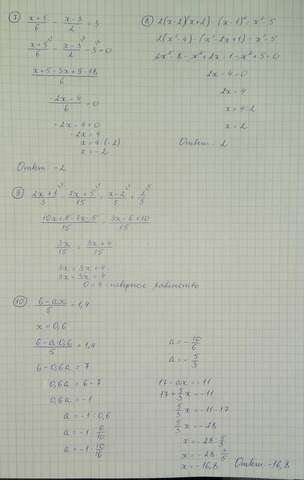 7) (x+5)/6 - (x-3)/2 = 3
(x+5)/6 - (x-3)³/2 - 3⁶ = 0
(x+5-3x+9-18)/6
(-2x-4)/6 = 0
-2x-4=0
-2x=4
x=4:(-2)
x=-2
Ответ: -2
8) 2(x-2)(x+2)-(x-1)²=x²-5
2(x²-4)-(x²-2x+1)=x²-5
2x²-8-x²+2x-1-x²+5=0
2x-4=0
2x=4
x=4:2
x=2
Ответ: 2
9)
15
3x/15 = (3x+4)/15
3x=3x+4
3x-3x=4
0=4 - неверное равенство
10) (6-ax)/5 = 1,4
x=0,6
(6-a·0,6)/5 = 1,4
6-0,6a=7
0,6a=6-7
0,6a=-1
a=-1:0,6
a=-1:6/10
a=-1·10/6
a=-10/6
a=-5/3
17-ax=-11
17+5/3x=-11
5/3x=-11-17
5/3x=-28
x=-28:5/3
x=-28·3/5
x=-16,8
Ответ: -16,8